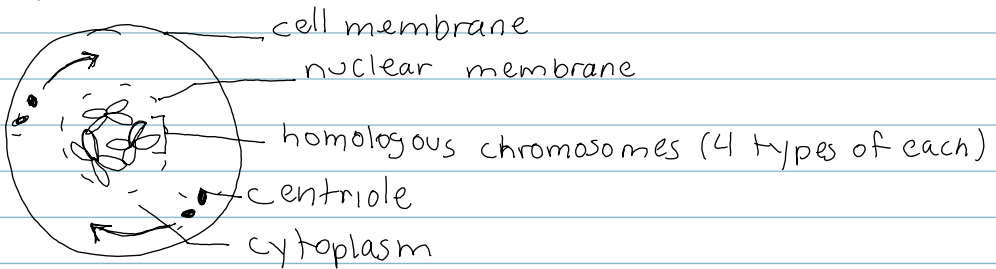 cell membrane
nuclear membrane
homologous chromosomes (4 types of each)
centriole
cytoplasm